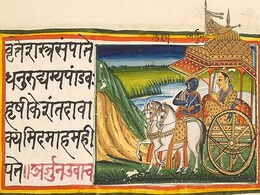 वृत्तेशस्त्रसंपाते
धनुरुद्यम्यपांडवः
हृषीकेशंतदावा
क्यमिदमाहमही
पते॥अर्जुनउवाच